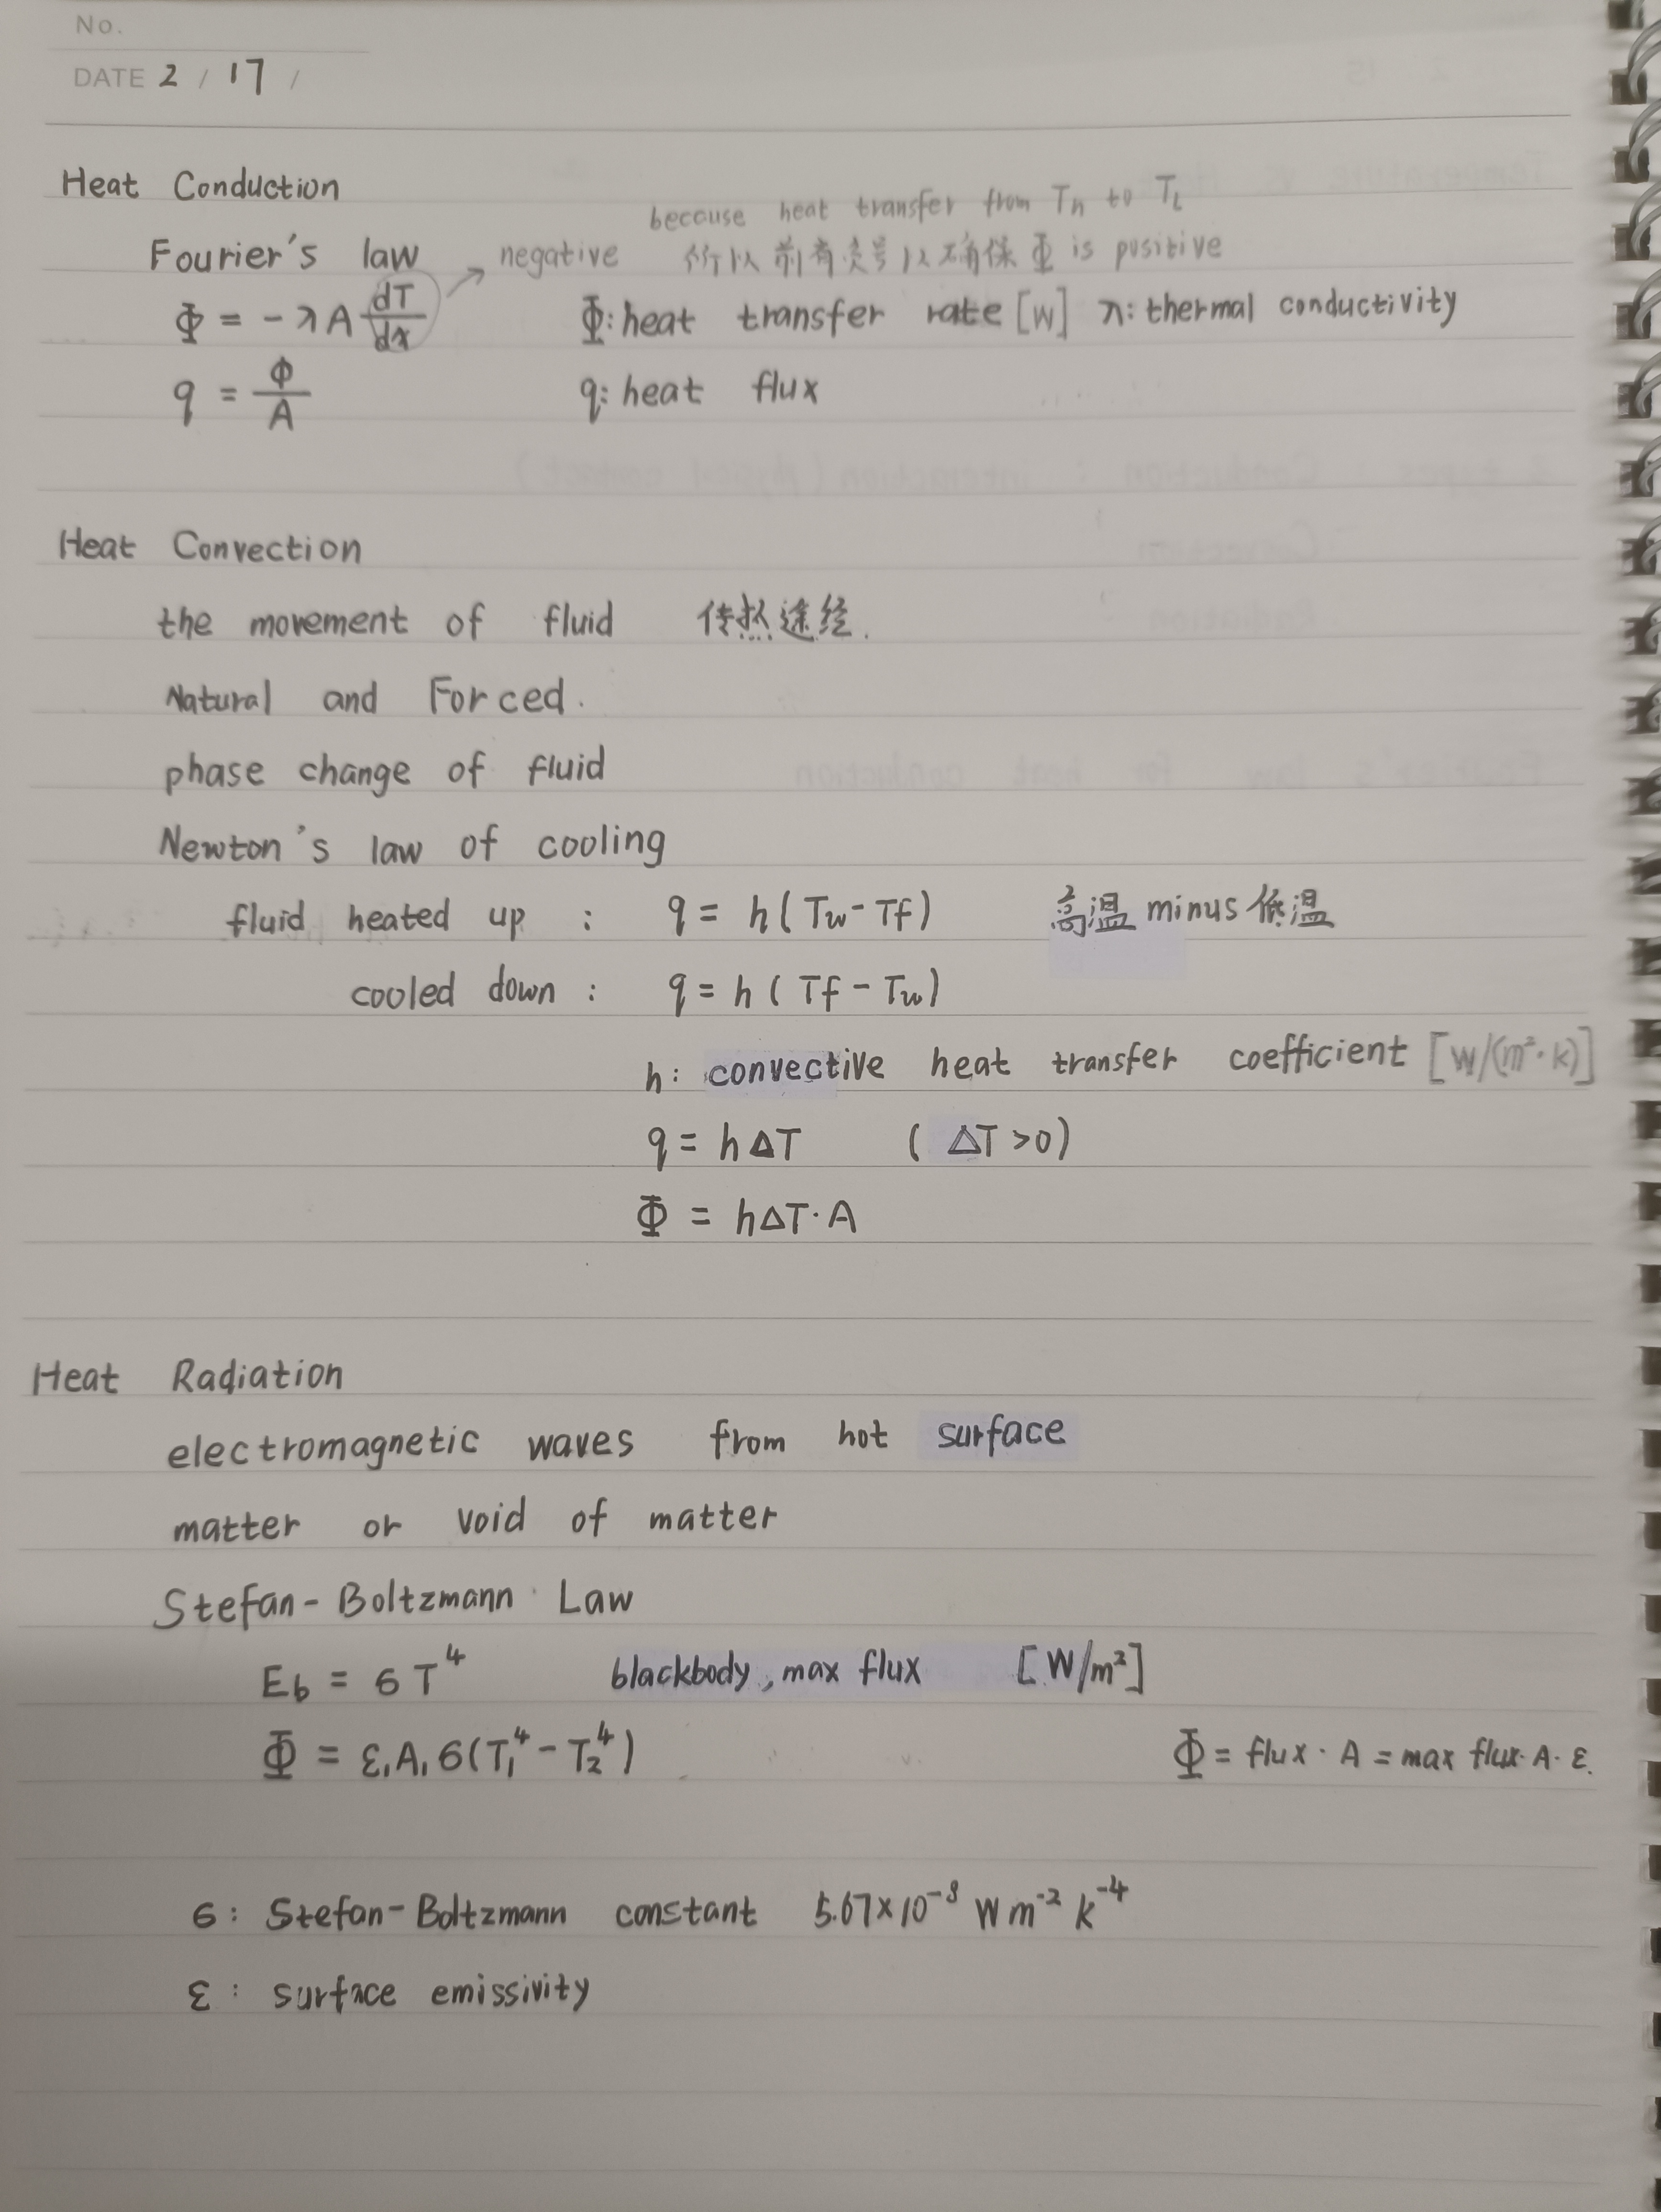 No.
DATE 2 / 17 /
Heat Conduction
because heat transfer from Th to TL
Fourier's law negative 所以前有负号以确保 Φ is positive
Φ = -λA dT/dx Φ: heat transfer rate [W] λ: thermal conductivity
q = Φ/A q: heat flux
Heat Convection
the movement of fluid 传热途经.
Natural and Forced.
phase change of fluid
Newton's law of cooling
fluid heated up : q = h(Tw-Tf) 高温 minus 低温
cooled down : q = h(Tf-Tw)
h: convective heat transfer coefficient [W/(m²·k)]
q = hΔT (ΔT>0)
Φ = hΔT·A
Heat Radiation
electromagnetic waves from hot surface
matter or void of matter
Stefan-Boltzmann Law
Eb = σT⁴ blackbody, max flux [W/m²]
Φ = ε₁A₁σ(T₁⁴-T₂⁴) Φ = flux·A = max flux·A·ε.
σ: Stefan-Boltzmann constant 5.67×10⁻⁸ W m⁻² k⁻⁴
ε: surface emissivity